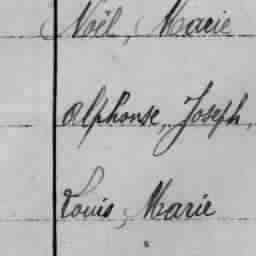 Noël, Marie
Alphonse, Joseph,
Louis, Marie